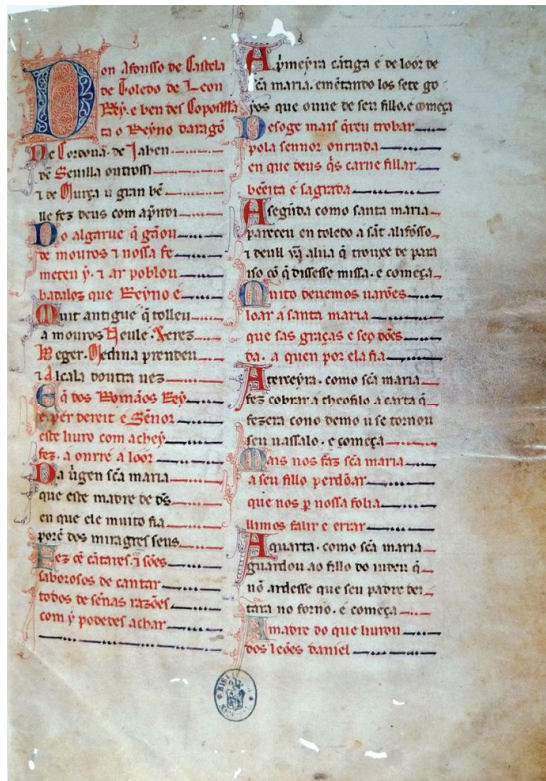 Don Afonsso de Castela
de Toledo de Leon
Rey. e ben des Copostella
ta o Reyno daragō
De Cordoua. de Iahen
de Seuilla outrossi
⁊ de Murça ú gran bē
lle fez deus com apndi
Do algarue q̄ gāou
de mouros ⁊ nossa fe
meteu y. ⁊ ar poblou
badaloz que Reyno é
Muit antigue q̄ tolleu
a mouros Neule. Xerez
Beger. Medina prendeu
⁊ Alcala doutra uez
E q̄ dos Romāos Rey
é per dereit e Sēnor
este liuro com achey
fez. a onrr̄ e a loor
Da uirgen sc̄a maria
que este madre de ds̄
en que ele muito fia
porē dos miragres seus
Fez cē cātares. ⁊ sōes
saborosos de cantar
todos de sēnas razōes
com y podedes achar
A p̄meyra cātiga é de loor de
sc̄a maria. emētando los sete go
yos que ouue de seu fillo. e comēça
Desoge mais q̄reu trobar
pola sennor onrrada
en que deus q̄s carne fillar
bēeita e sagrada
A segūda como santa maria
pareceu en toledo a sāt alifōsso
⁊ deull ūa alua q̄ trouxe de para
iso cō q̄ dissesse missa. e comēça
Muito deuemos uarōes
loar a santa maria
que sas graças e seꝯ dōes
da. a quen por ela fia
A terceyra. como sc̄a maria
fez cobrar a theofilo a carta q̄
fezera cono demo u se tornou
seu uassalo. e começa
Mais nos faz sc̄a maria
a seu fillo perdōar
que nos p̱ nossa folia
llimos falir e errar
A quarta. como sc̄a maria
guardou ao fillo do iudeu q̄
nō ardesse que seu padre dei
tara no forno. e começa
A madre do que liurou
dos leōes daniel